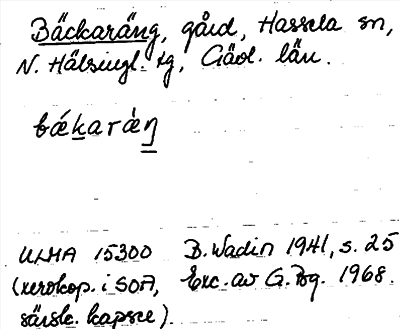 Bäckaräng, gård, Hassela sn,
N. Hälsingl. tg, Gävl. län.
bǽkaráŋ
ULMA 15300 B. Wadin 1941, s. 25
(xerokop. i SOA, Exc. av G. Bg. 1968.
särsk. kapsel).